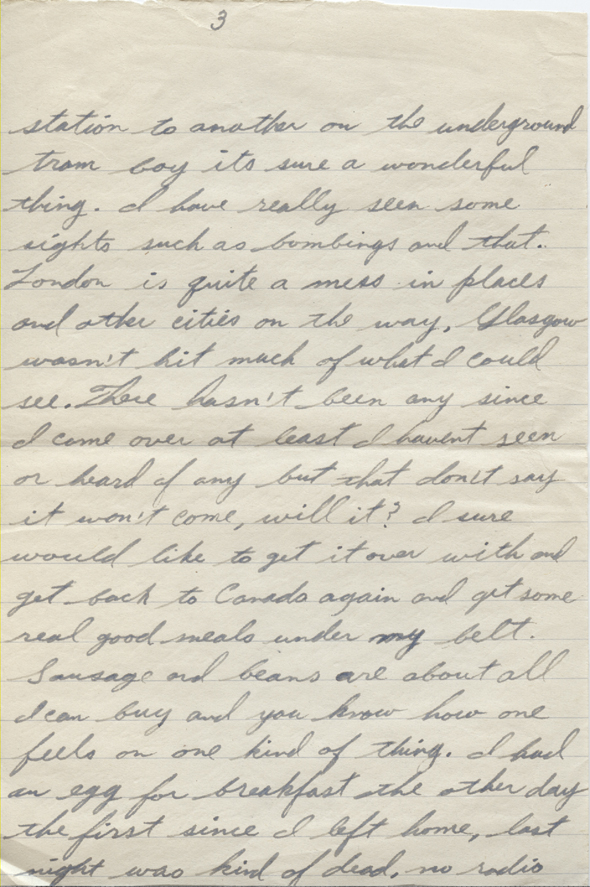 3
station to another on the underground
tram boy its sure a wonderful
thing. I have really seen some
sights such as bombings and that.
London is quite a mess in places
and other cities on the way, Glasgow
wasn't hit much of what I could
see. There hasn't been any since
I came over at least I havent seen
or heard of any but that don't say
it won't come, will it? I sure
would like to get it over with and
get back to Canada again and get some
real good meals under my belt.
Sausage and beans are about all
I can buy and you know how one
feels on one kind of thing. I had
an egg for breakfast the other day
the first since I left home, last
night was kind of dead, no radio